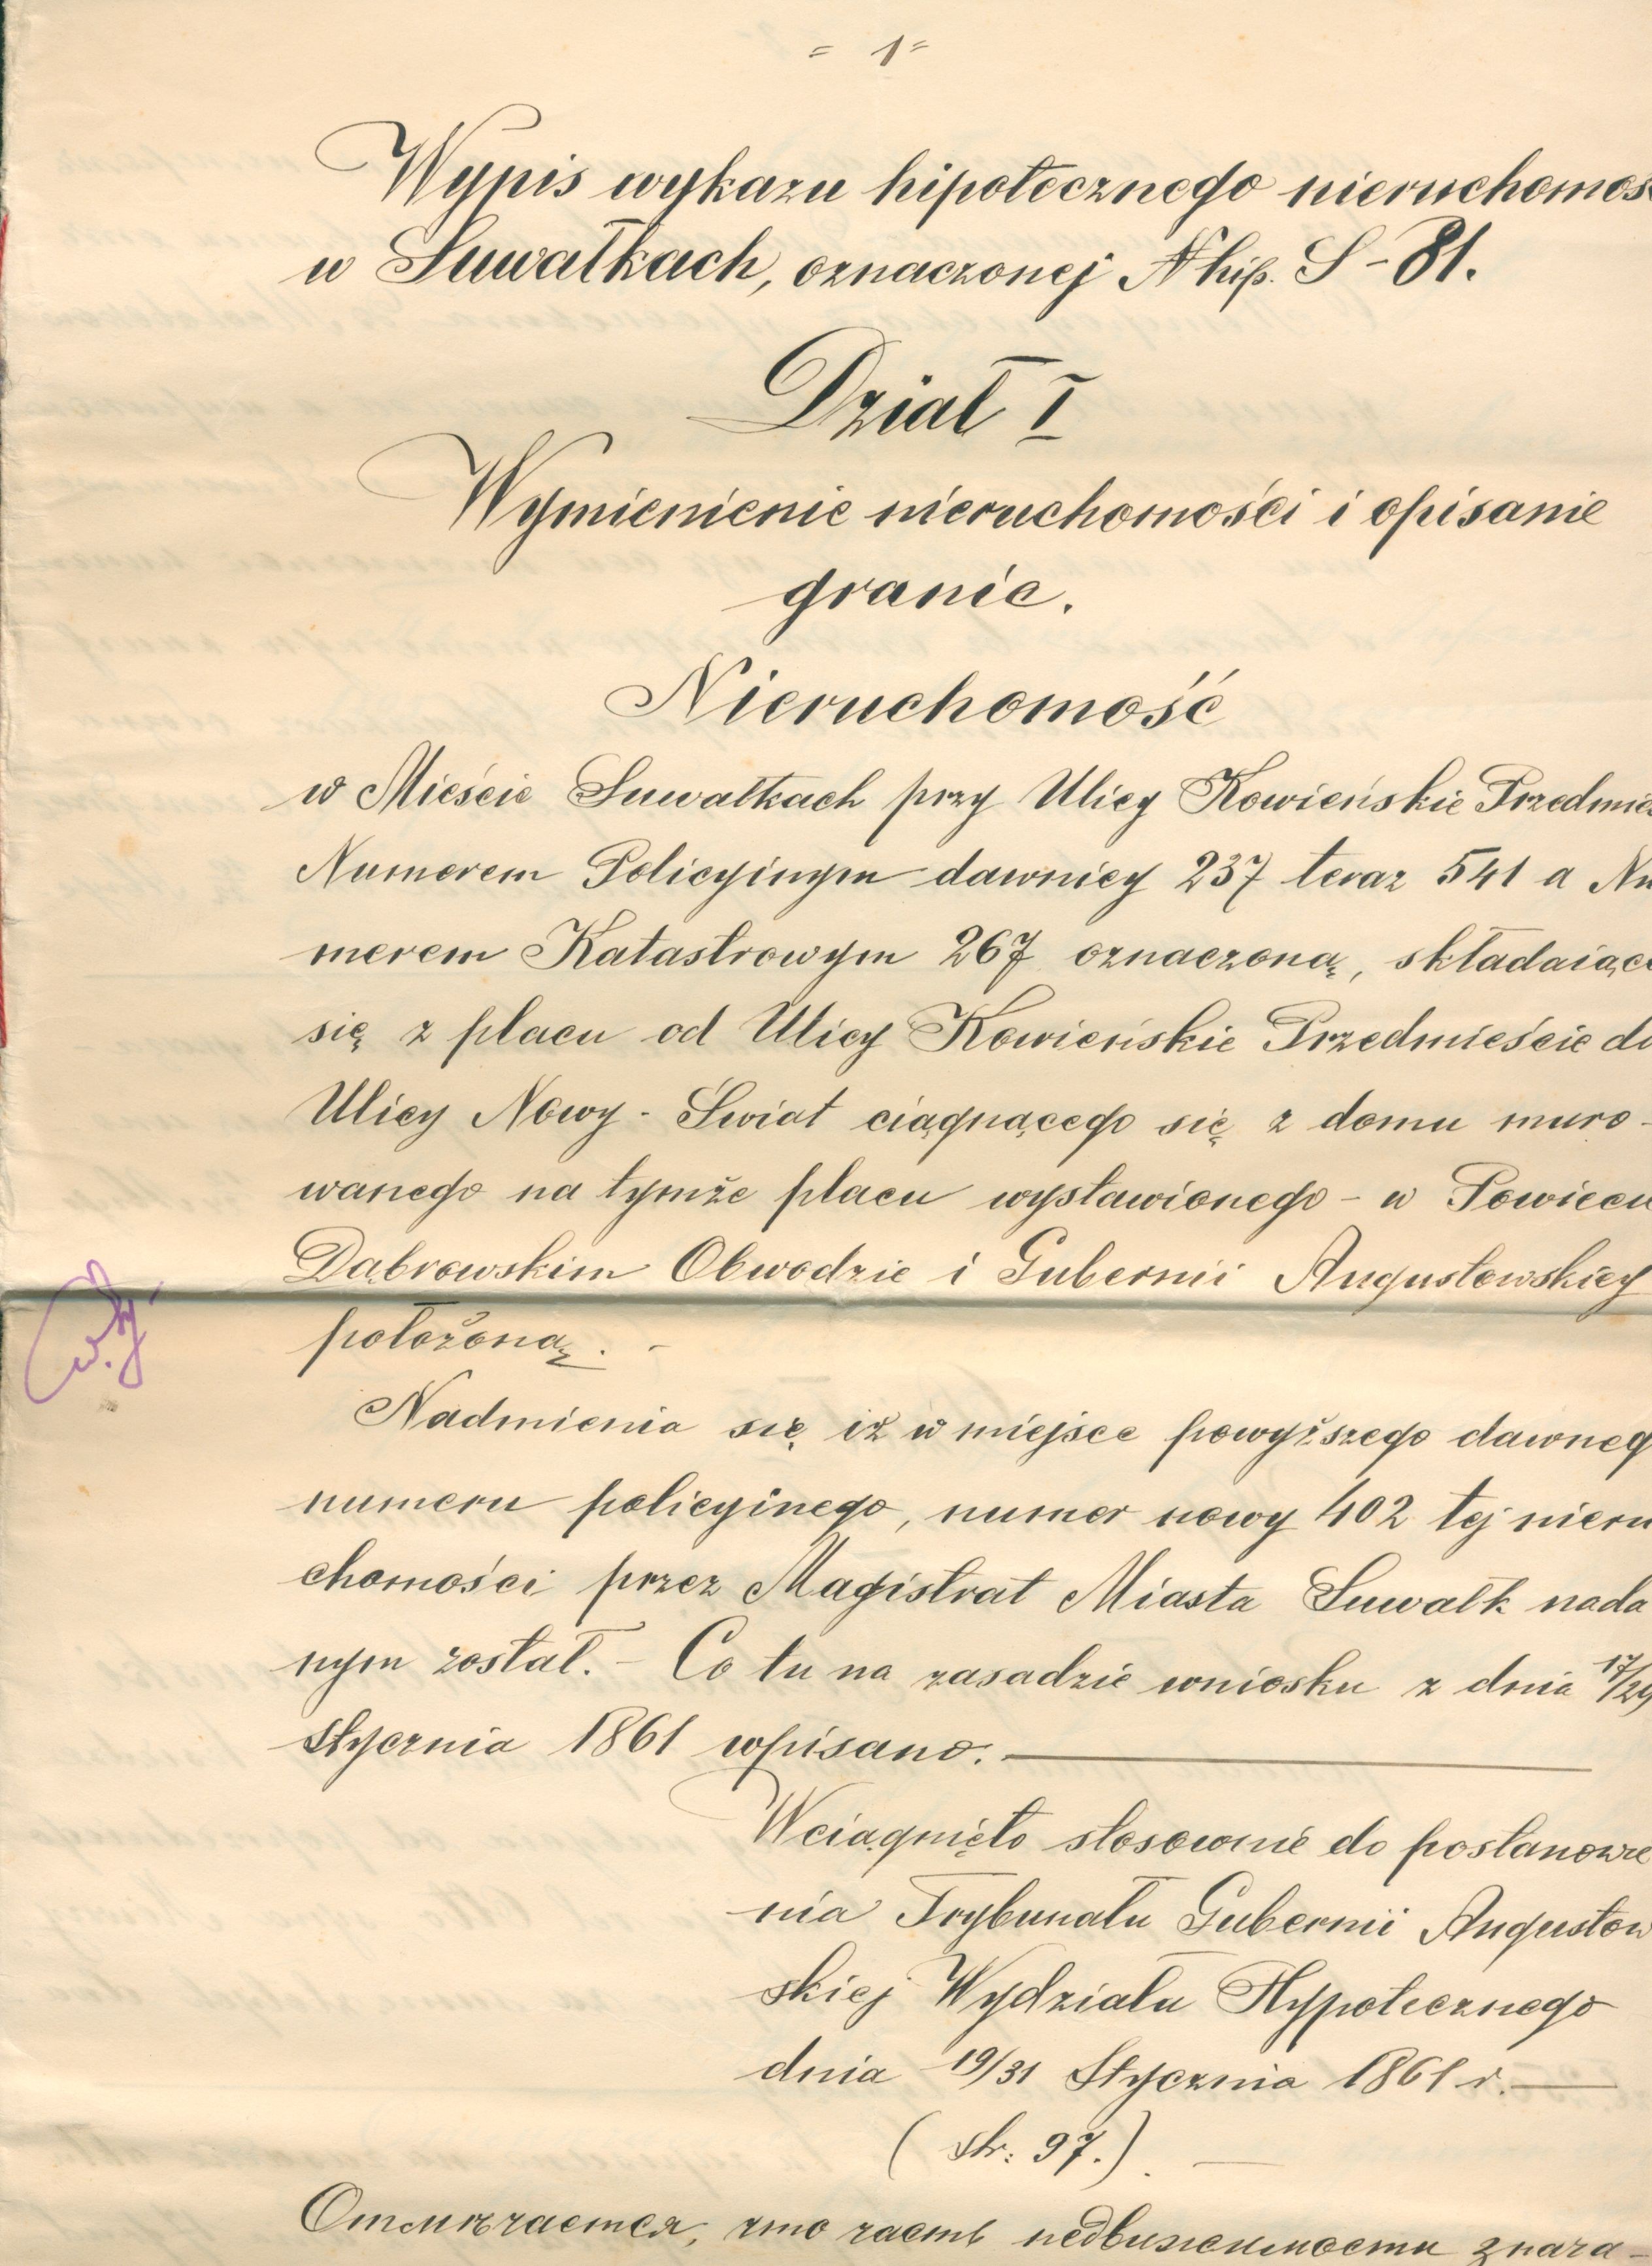 = 1 =
Wypis wykazu hipotecznego nieruchomoś
w Suwałkach, oznaczonej N hip. S-81.
Dział I
Wymienienie nieruchomości i opisanie
granic.
Nieruchomość
w Mieście Suwałkach przy Ulicy Kowieńskie Przedmieś
Numerem Policyinym dawniey 237 teraz 541 a Nu
merem Katastrowym 267 oznaczoną, składaiące
się z placu od Ulicy Kowieńskie Przedmieście do
Ulicy Nowy-Świat ciągnącego się z domu muro-
wanego na tymże placu wystawionego - w Powiecu
Dąbrowskim Obwodzie i Gubernii Augustowskiey
położoną. -
Nadmienia się iż w miejsce powyższego dawneg
numeru policyinego, numer nowy 402 tej nieru
chomości przez Magistrat Miasta Suwałk nada
nym został. - Co tu na zasadzie wniosku z dnia 17/29
Stycznia 1861 wpisano.
Wciągnięto stosownie do postanowie
nia Trybunału Gubernii Augustow
skiej Wydziału Hypotecznego
dnia 19/31 Stycznia 1861 r.
(Str: 97.)
Отмѣчается, что часть недвижимости знача-